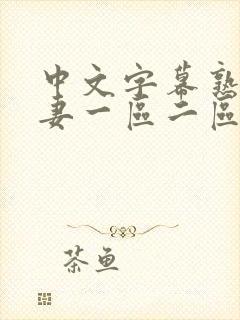 中文字幕熟
妻一區二區
茶魚